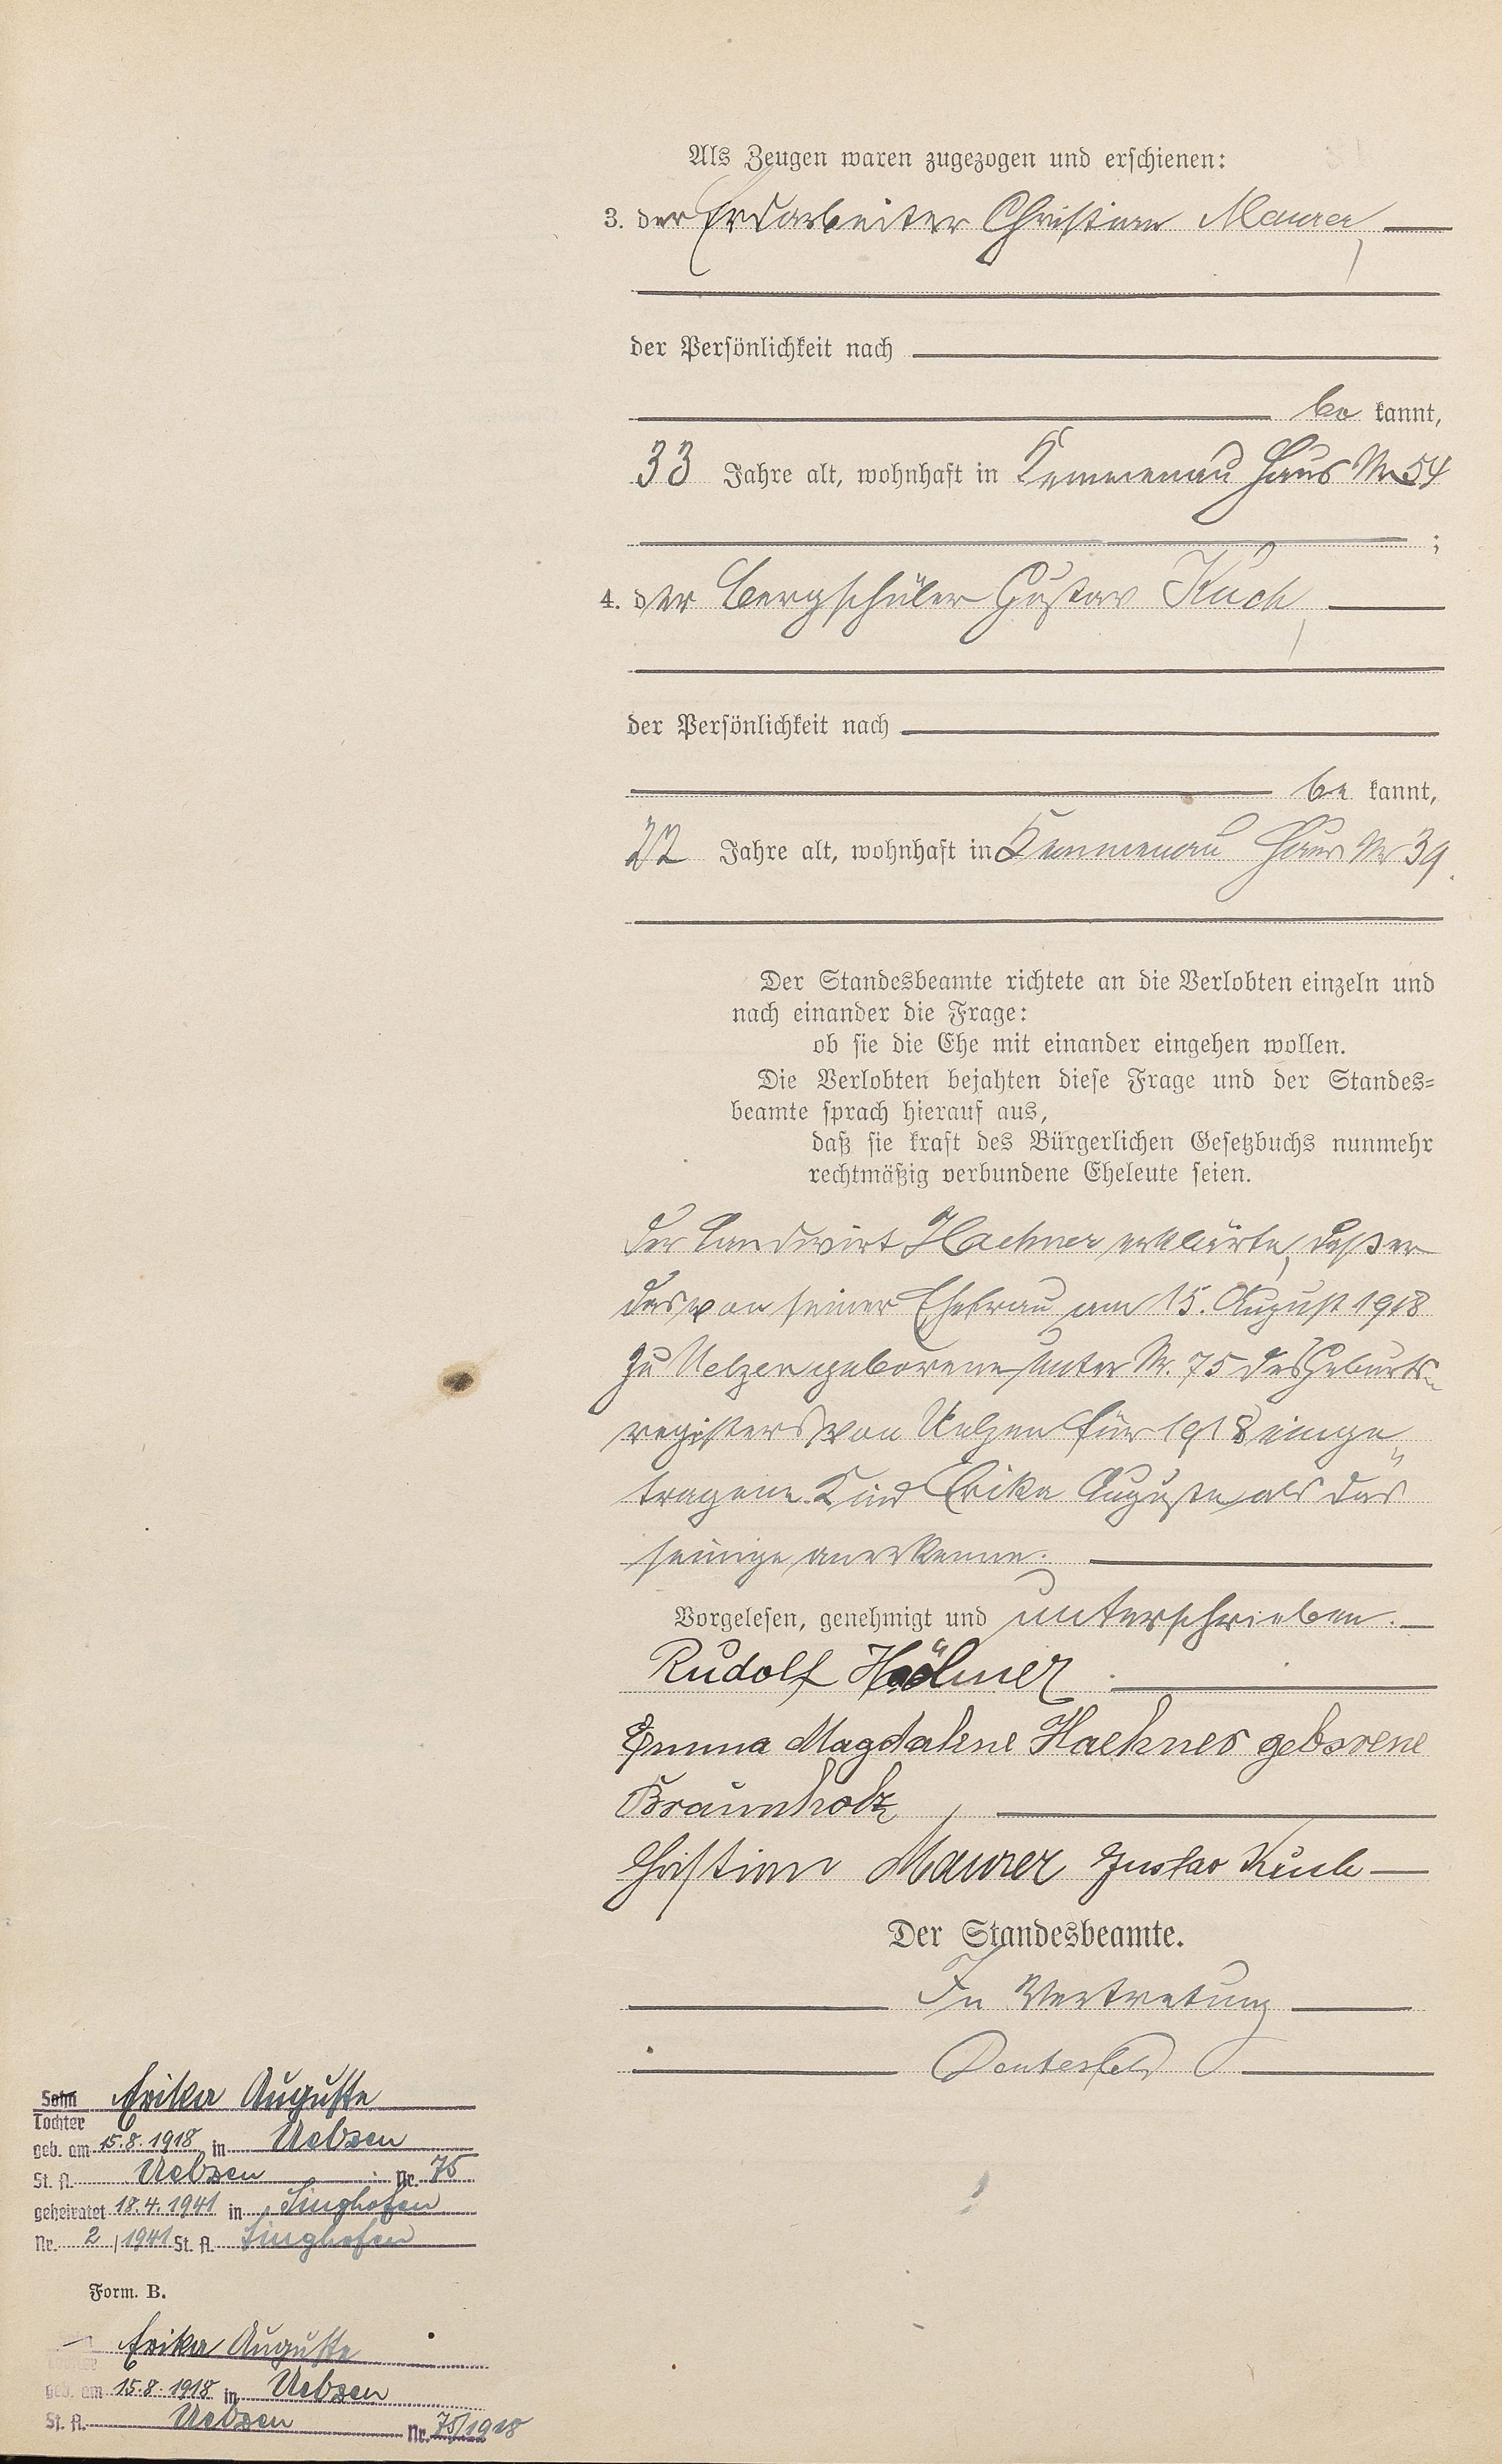 Als Zeugen waren zugezogen und erschienen:
3. der Erdarbeiter Christian Maurer,
der Persönlichkeit nach
be kannt,
33 Jahre alt, wohnhaft in Kemmenau Haus Nr 54
;
4. der Bergschüler Gustav Kuch,
der Persönlichkeit nach
be kannt,
22 Jahre alt, wohnhaft in Kemmenau Haus Nr 39.
Der Standesbeamte richtete an die Verlobten einzeln und
nach einander die Frage:
ob sie die Ehe mit einander eingehen wollen.
Die Verlobten bejahten diese Frage und der Standes-
beamte sprach hierauf aus,
daß sie kraft des Bürgerlichen Gesetzbuchs nunmehr
rechtmäßig verbundene Eheleute seien.
Der Landwirt Haehner erklärte, daß er
das von seiner Ehefrau am 15. August 1918
zu Uelzen geborene, unter Nr. 75 des Geburts-
registers von Uelzen für 1918 einge-
tragene Kind Erika Auguste als das
seinige anerkenne.
Vorgelesen, genehmigt und unterschrieben.
Rudolf Hähner
Emma Magdalene Haehner geborene
Braunholz,
Christian Maurer Gustav Kuch
Der Standesbeamte.
In Vertretung
Sohn Erika Auguste
Tochter
geb. am 15.8.1918 in Uelzen
St. A. Uelzen Nr. 75
geheiratet 18.4.1941 in Singhofen
Nr. 2/1941 St. A. Singhofen
Form. B.
Erika Auguste
geb. am 15.8.1918 in Uelzen
St. A. Uelzen Nr. 75/1918